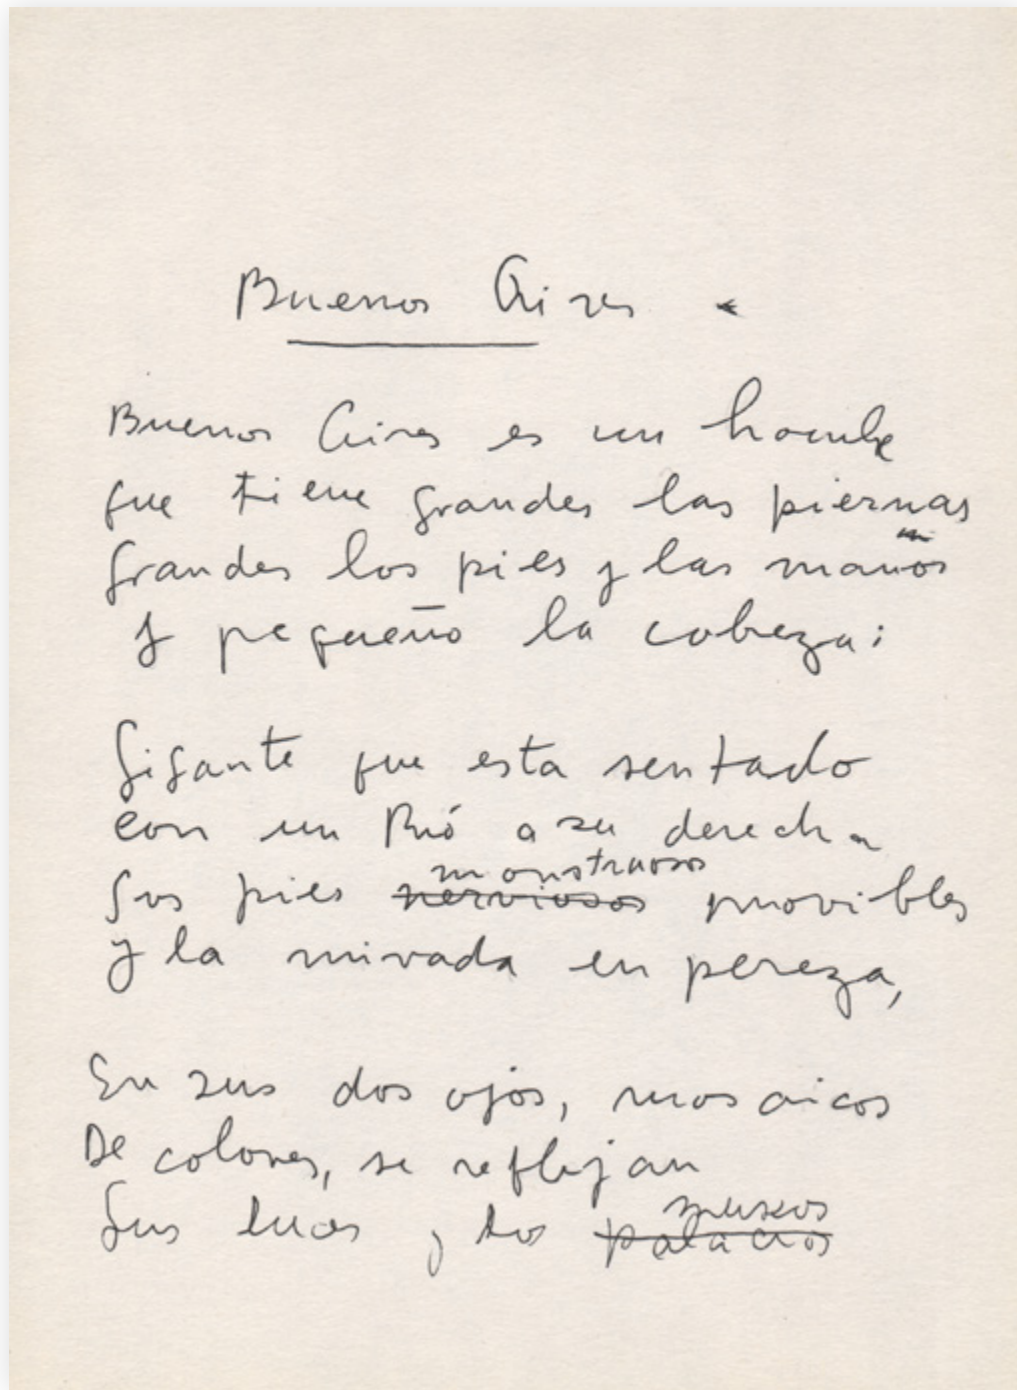 Buenos Aires
Buenos Aires es un hombre
que tiene grandes las piernas
grandes los pies y las manos
y pequeño la cabeza;
Gigante que esta sentado
con un Rió a su derecha
sus pies ~~nerviosos~~ monstruosos movibles
y la mirada en pereza,
En sus dos ojos, mosaicos
De colores, se reflejan
Sus luces y los ~~palacios~~